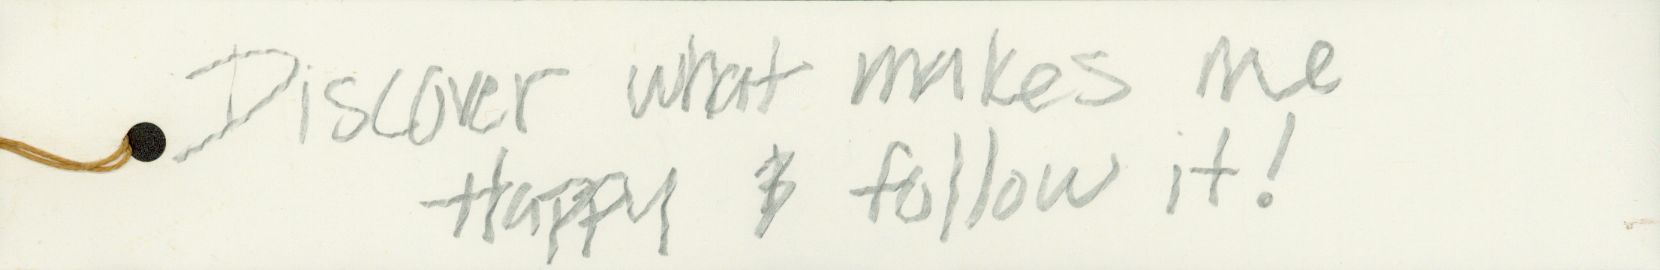 Discover what makes me
Happy & follow it!